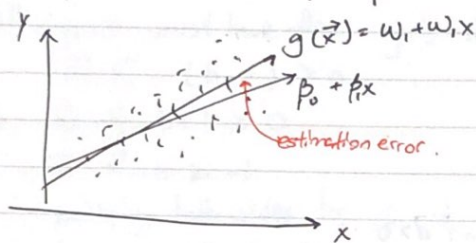 Y
g(x⃗) = ω₁ + ω₁x
β₀ + β₁x
estimation error.
x